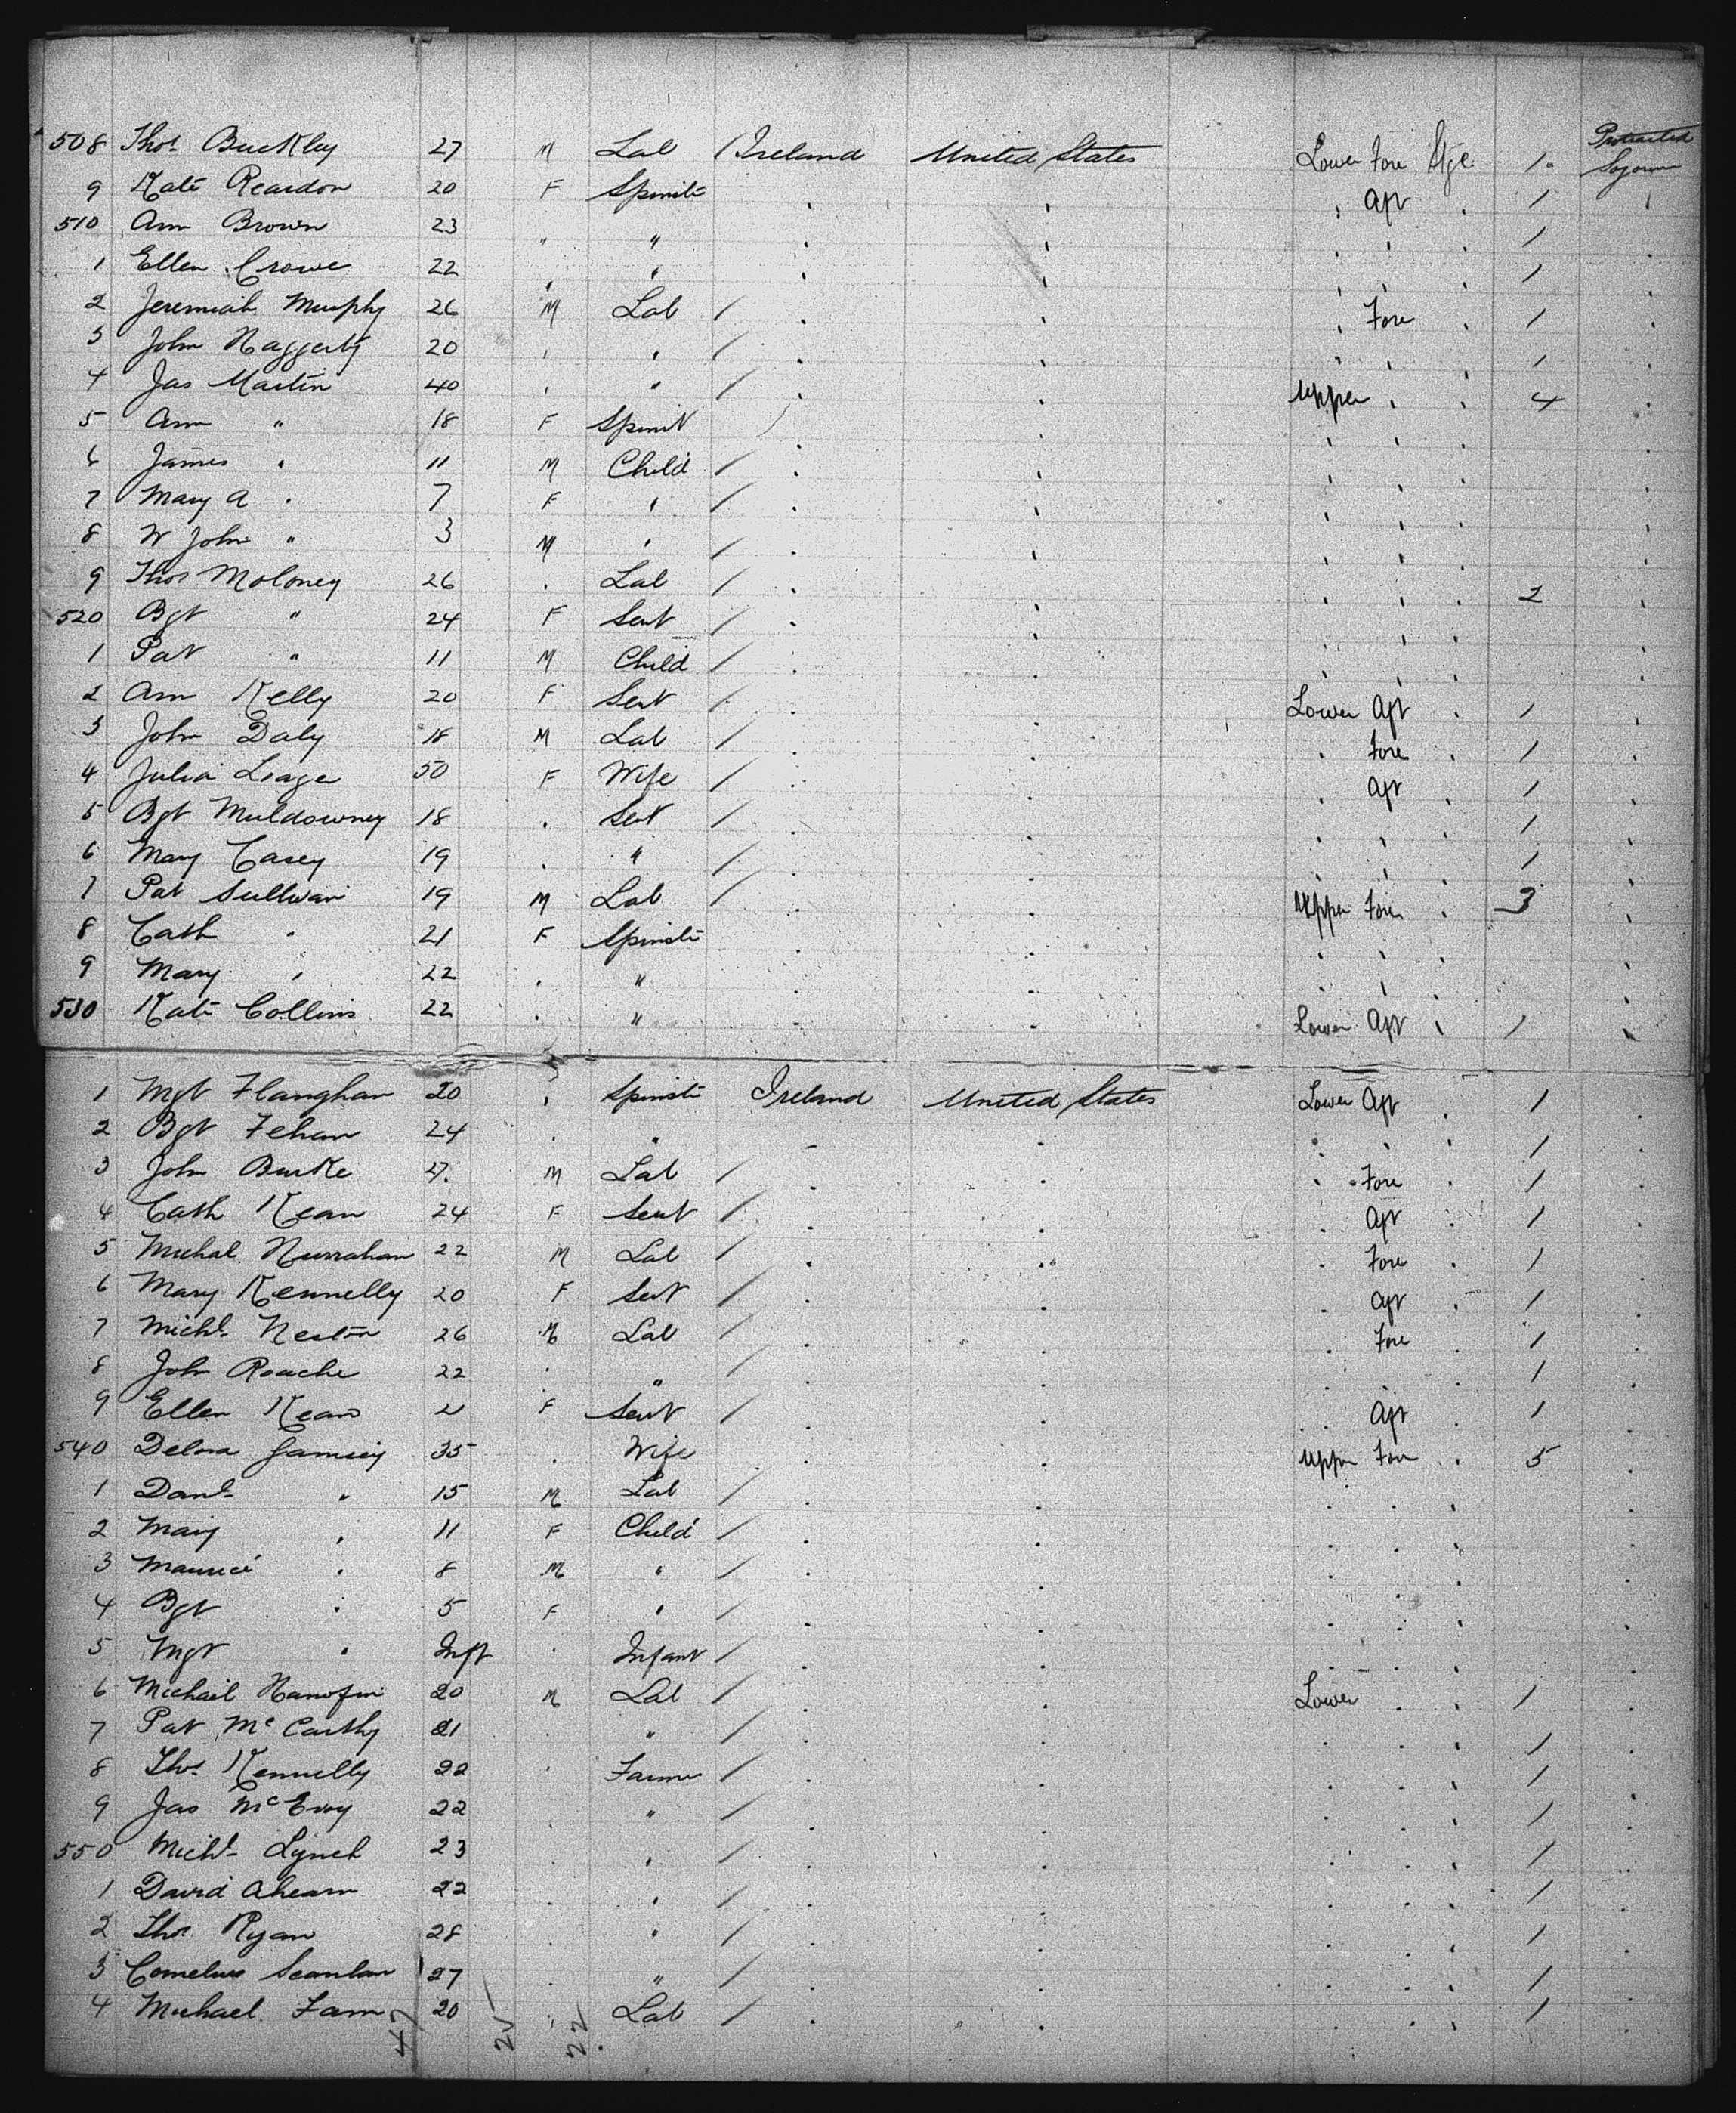 508 Thos Buckley 27 M Lab / Ireland United States Lower Fore Stge 1 Protracted Sojourn
9 Kate Reardon 20 F Spinstr " " " Aft " 1 "
510 Ann Brown 23 " " " " " " " 1 "
1 Ellen Crowe 22 " " " " " " " 1 "
2 Jeremiah Murphy 26 M Lab / " " " Fore " 1 "
3 John Haggerty 20 " " / " " " " " 1 "
4 Jas Martin 40 " " / " " Upper " " 4 "
5 Ann " 18 F Spinst / " " " " "
6 James " 11 M Child / " " " " " "
7 Mary A " 7 F " / " " " " " "
8 W John " 3 M " / " " " " " "
9 Thos Moloney 26 " Lab / " " " " " 2 "
520 Bgt " 24 F Sevt / " " " " " "
1 Pat " 11 M Child / " " " " " "
2 Ann Kelly 20 F Sevt / " " Lower Aft " 1 "
3 John Daly 18 M Lab / " " " Fore " 1 "
4 Julia 50 F Wife / " " " Aft " 1 "
5 Bgt Muldowney 18 " Sevt / " " " " " 1 "
6 Mary Casey 19 " " / " " " " " 1 "
7 Pat Sullivan 19 M Lab / " " Upper Fore " 3 "
8 Cath " 21 F Spinstr " " " " " "
9 Mary " 22 " " " " " " " "
530 Kate Collins 22 " " " " Lower Aft " 1 "
1 Mgt Flanghan 20 " Spinstr Ireland United States Lower Aft " 1 "
2 Bgt Fehan 24 " " " " " " " 1 "
3 John Burke 27 M Lab / " " " Fore " 1 "
4 Cath Kean 24 F Sevt / " " " Aft " 1 "
5 Michal Hurrahan 22 M Lab / " " " Fore " 1 "
6 Mary Kennelly 20 F Sevt / " " " Aft " 1 "
7 Michl Nestor 26 M Lab / " " " Fore " 1 "
8 John Roache 22 " " / " " " " " 1 "
9 Ellen Kean F Sevt / " " " Aft " 1 "
540 Delma 35 " Wife / " " Upper Fore " 5 "
1 Danl " 15 M Lab / " " " " " "
2 Mary " 11 F Child / " " " " " "
3 Maurice " 8 M " / " " " " " "
4 Bgt " 5 F " / " " " " " "
5 Mgt " Inft " Infant / " " " " " "
6 Michael Hanofin 20 M Lab / " " Lower " " 1 "
7 Pat McCarthy 21 " " / " " " " " 1 "
8 Thos Kennelly 22 " Farmer / " " " " " 1 "
9 Jas McEvoy 22 " " / " " " " " 1 "
550 Michl Lynch 23 " " / " " " " " 1 "
1 David Ahearn 22 " " / " " " " " 1 "
2 Thos Ryan 28 " " / " " " " " 1 "
3 Cornelius Scanlan 27 " " / " " " " " 1 "
4 Michael 20 " Lab / " " " " " 1 "
47 25 22